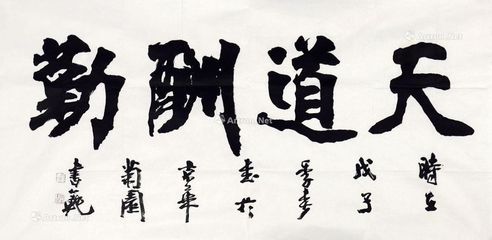 天道酬勤
時在
戊子
季
書於
京華
菊園
書